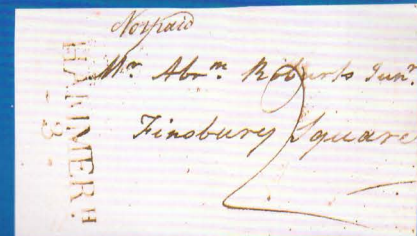 Not paid
Mr. Abrm. Roberts Junr.
Finsbury Square
2
HAMMER H
3